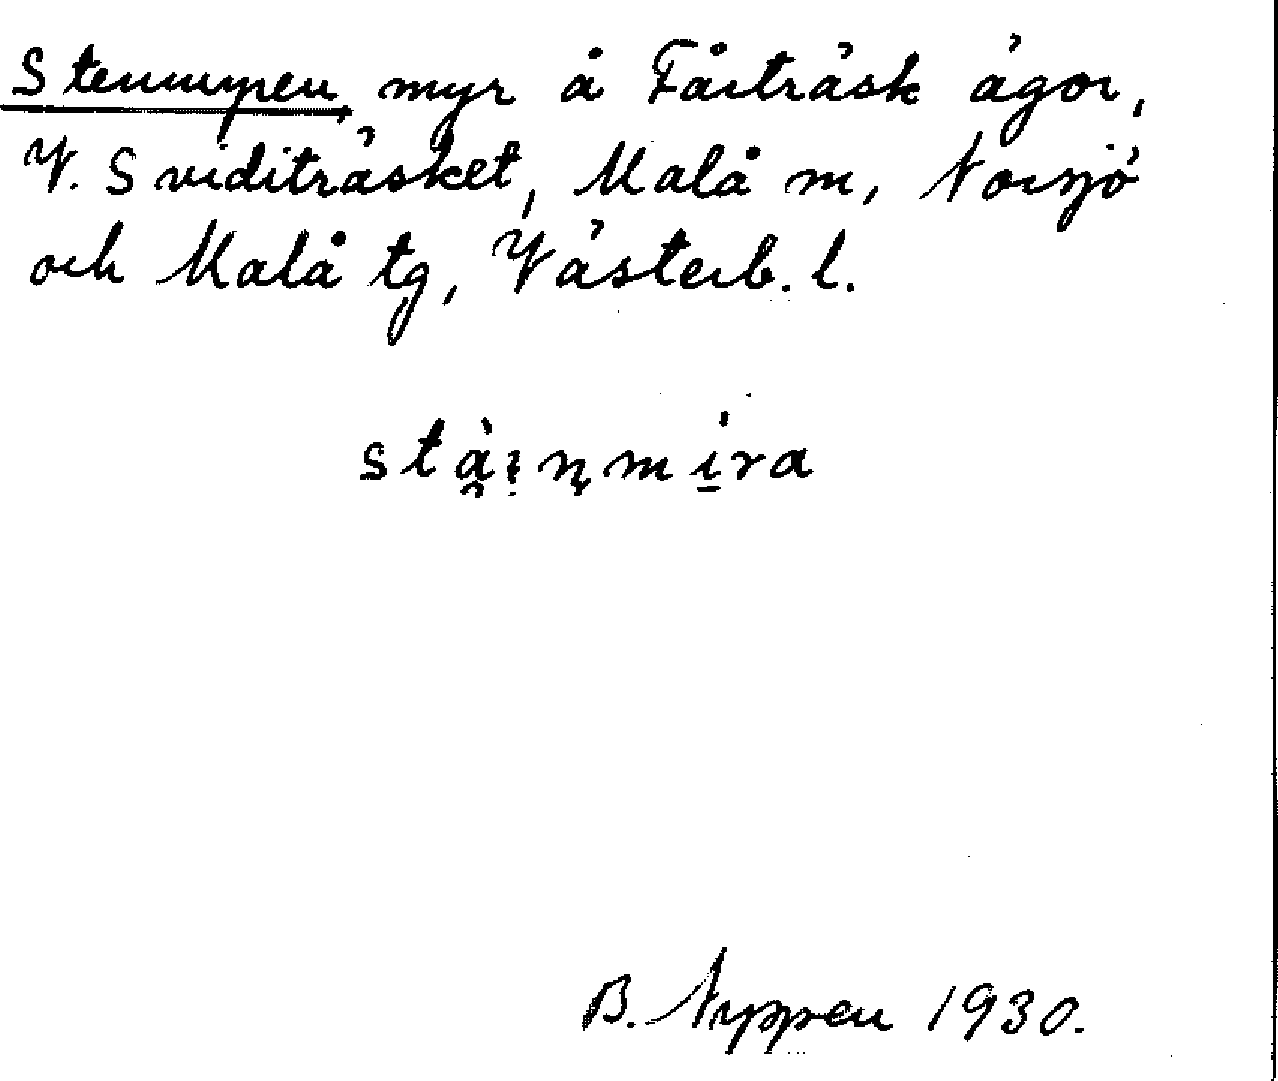 Stenmyren, myr å Fårträsk ägor,
V. Sviditräsket, Malå sn, Norsjö
och Malå tg, Västerb. l.
B. Nyppen 1930.